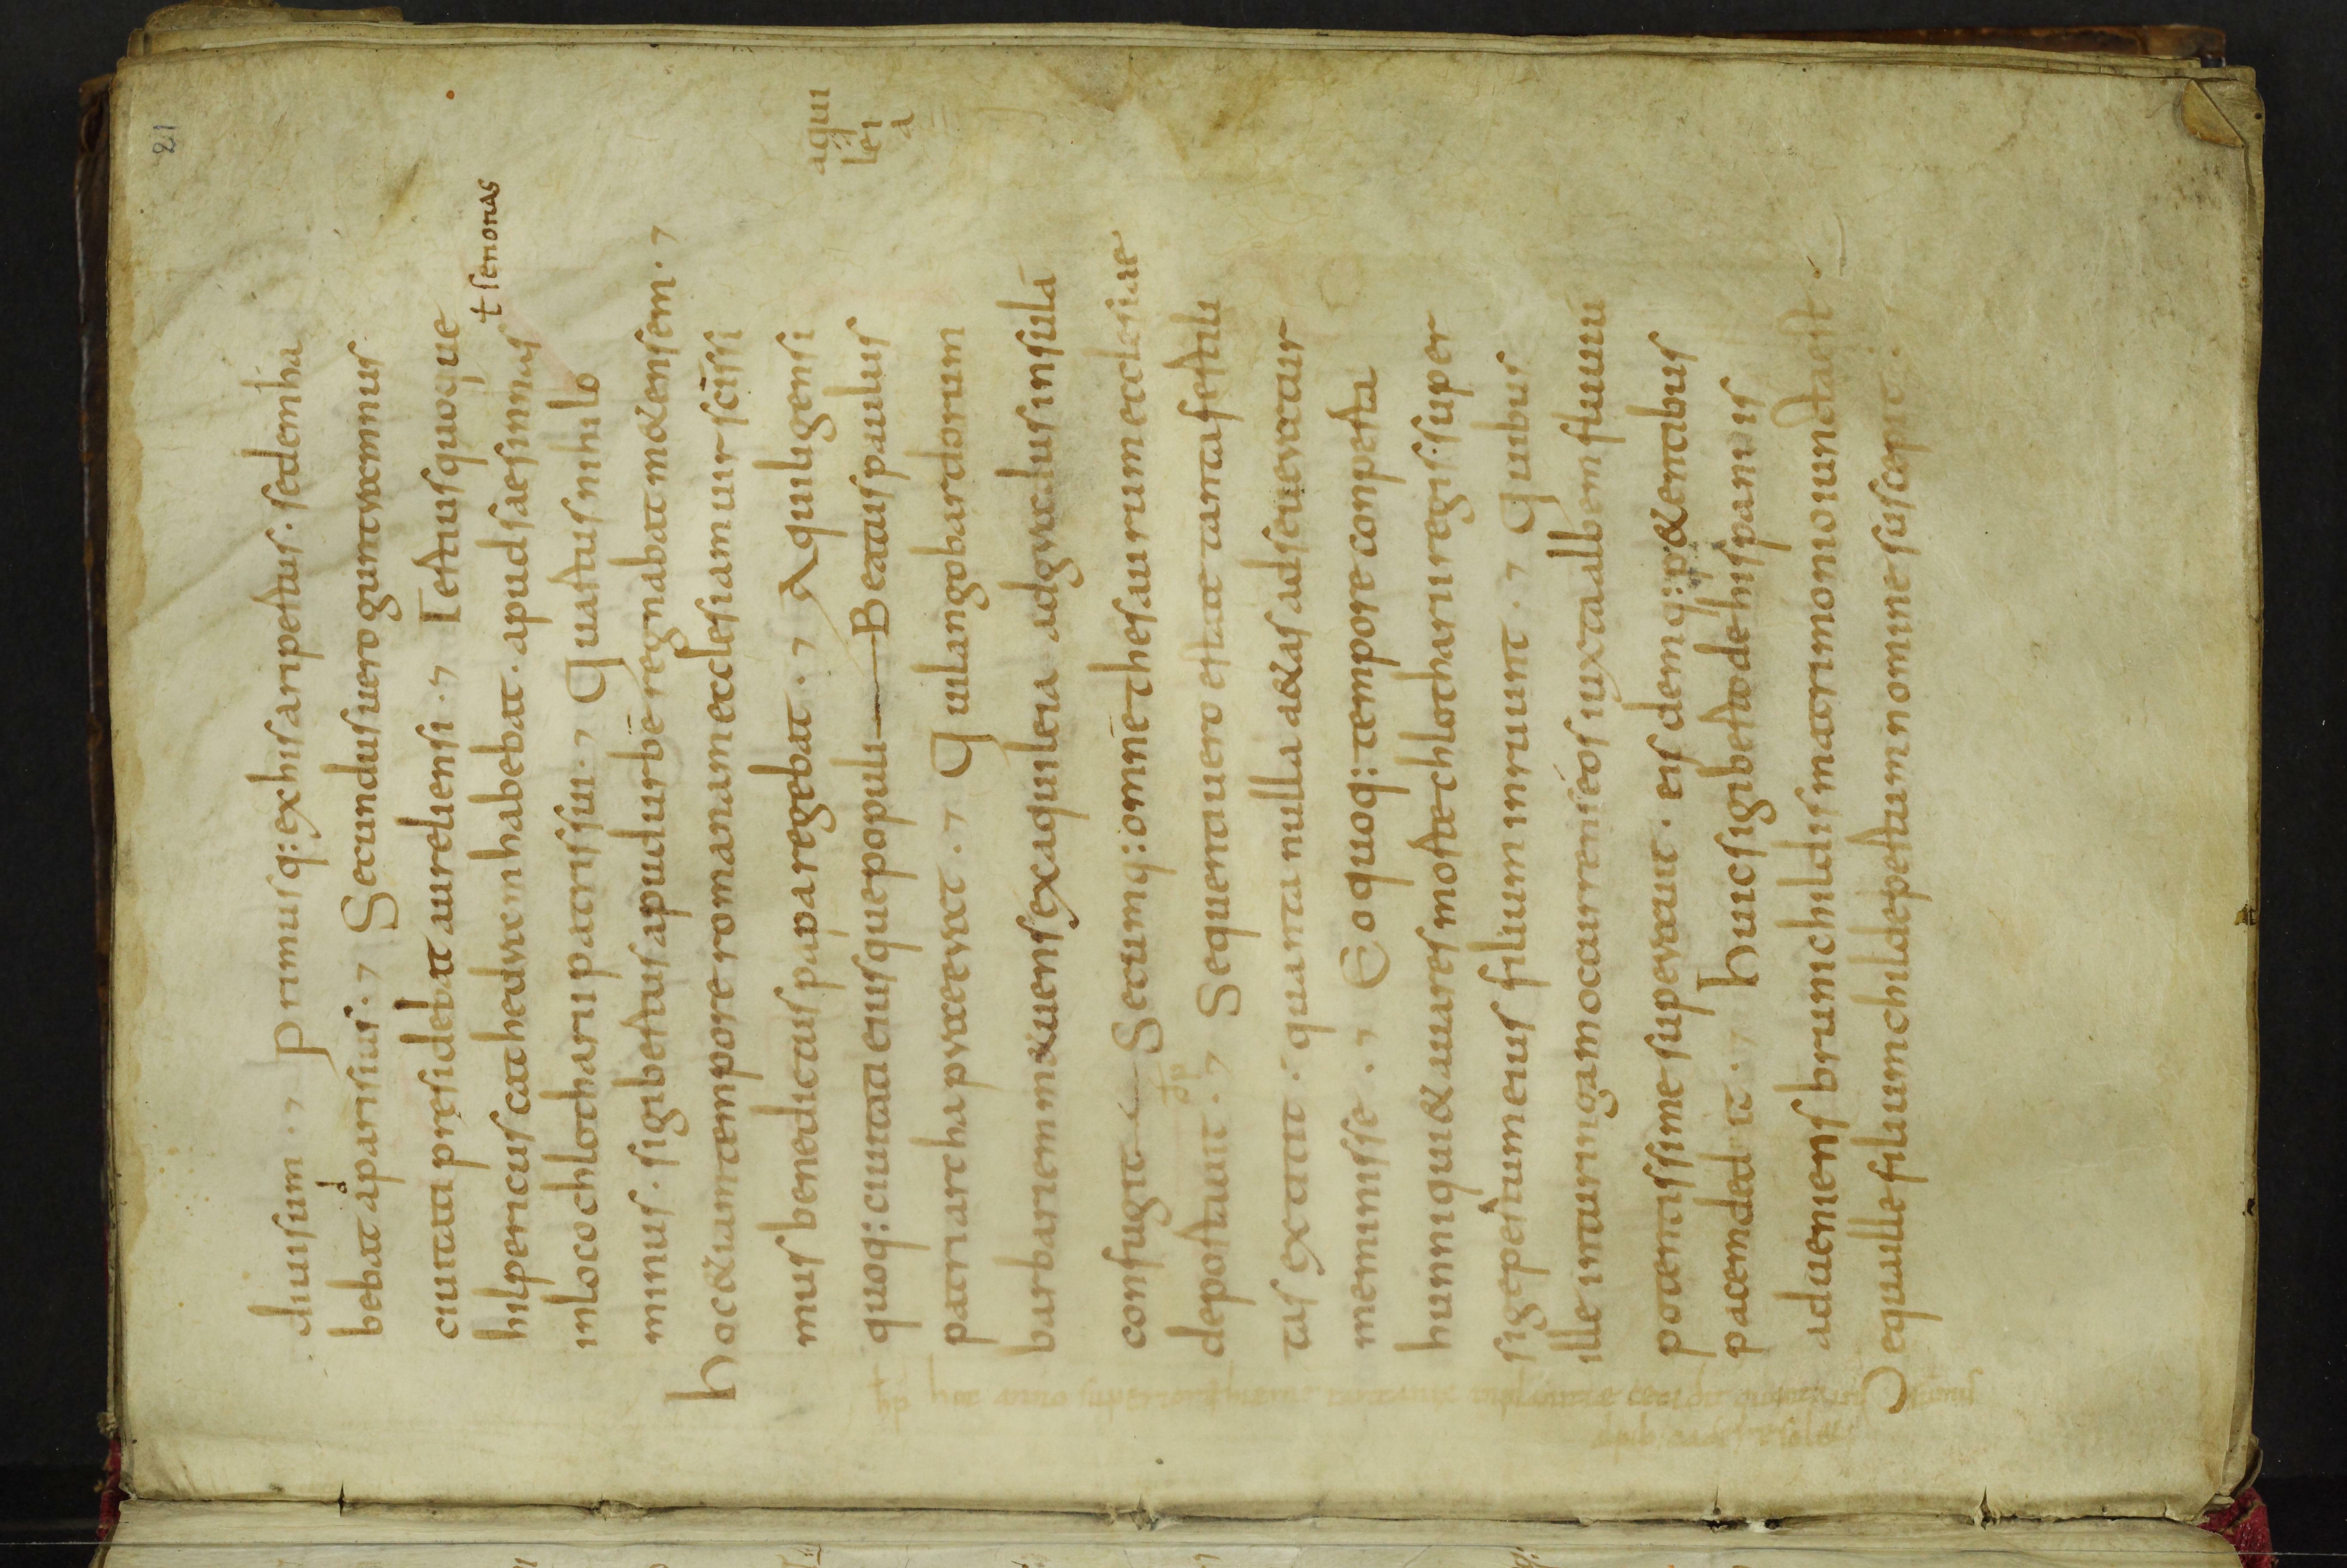 21
diuisum. Primusq: ex his aripertus. sedem ha
bebat aparisius. Secundus uero guntramnus
ciuitati presidebat aureliensi. Tertius quoque
hilpericus cathedram habebat. apud saesinnas
t senonas
in loco chlotharii patris sui. Quartus nihilo
minus. sigibertus apud urbē regnabat m&ensem.
hoc &iam tempore romanam ecclesiam uir scissi
mus benedictus papa regebat. Aquiligensi
aqui
lei
a
quoq: ciuitati eiusque populi Beatus paulus
patriarcha praeerat. Qui langobardorum
barbariem m&uens ex aquileia ad gradus insulā
confugit Secumq: omnē thesaurum ecclesiae
deportauit. Sequenti uero estate tanta fertili
tas extitit. quanta nulla a&as adseueratur
meminisse. Eo quoq: tempore conperta
hunni qui & auares morte chlotharii regis. super
sigepertum eius filium inruunt. Quibus
ille in turingam occurrens eos iuxta albem fluuiū
potentissime superauit. eisdemq: p&entibus
pacem dedit. huic sigiberto de hispaniis
adueniens brunichildis matrimonio iuncta est
De qua ille filium childepertum nomine suscepit.
hoc anno superiori hieme